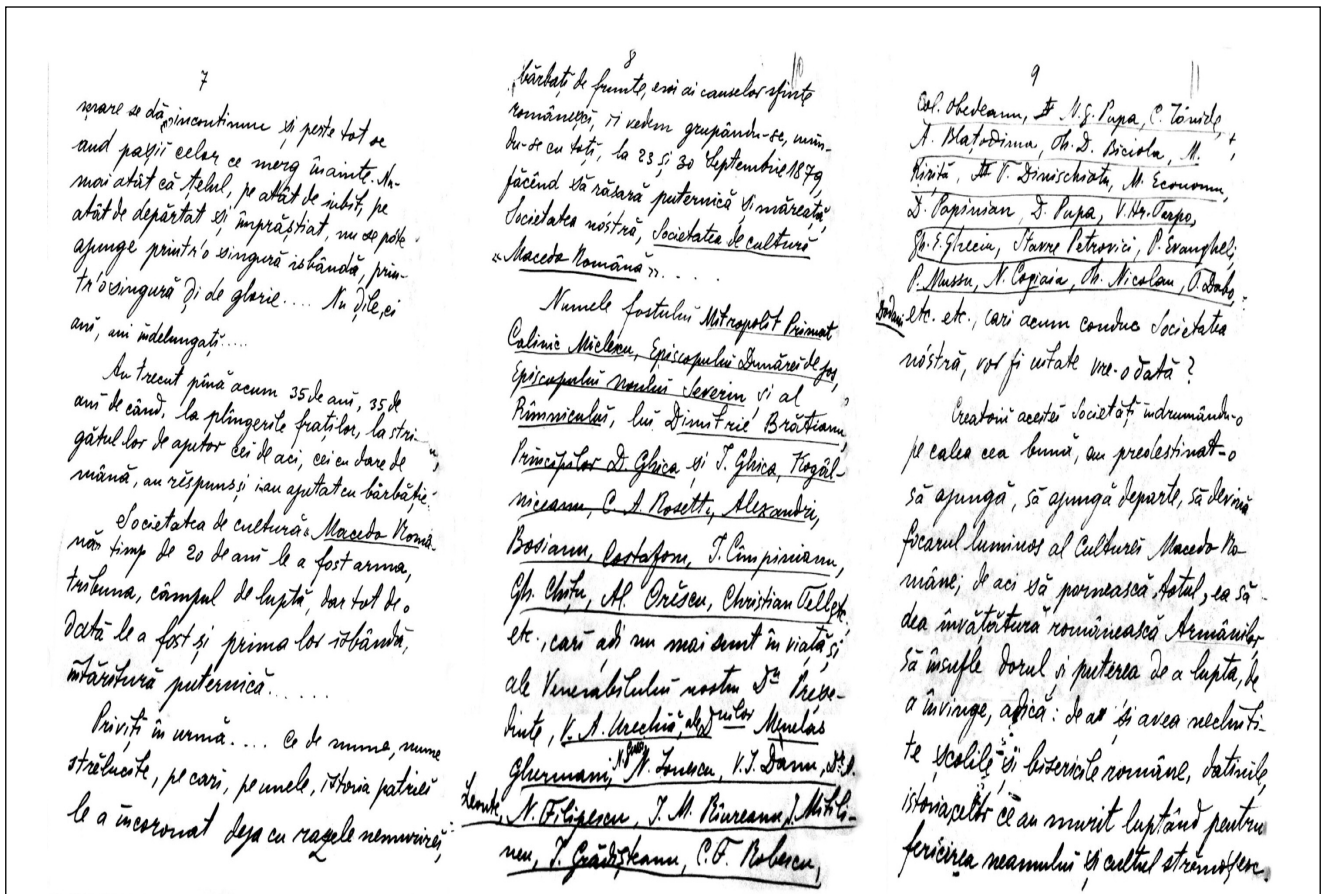 7
mare se dă, incontinuu și peste tot se
aud pașii celor ce merg înainte. Nu-
mai atât că țelul, pe atât de iubit, pe
atât de depărtat și împrăștiat, nu se póte
ajunge printr'o singură isbândă, prin-
tr'o singură di de glorie.... Nu dile, ci
ani, ani indelungați....
Au trecut pînă acum 35 de ani, 35 de
ani de când, la plîngerile fraților, la stri-
gătul lor de ajutor cei de aci, cei cu dare de
mână, au rĕspuns și i-au ajutat cu bărbăție.
Societatea de cultură „Macedo Româ-
nă" timp de 20 de ani le a fost arma,
tribuna, câmpul de luptă, dar tot de o
dată le a fost și prima lor isbândă,
întăritură puternică......
Priviți în urmă.... Ce de nume, nume
strălucite, pe cari, pe unele, istoria patriei
le a incoronat deja cu razele nemurirei,
8
10
bărbați de frunte, eroi ai causelor sfinte
românești, ii vedem grupându-se, unin-
du-se cu toți, la 23 și 30 Septembrie 1879,
făcênd să răsară puternică și măreață,
Societatea nóstră, Societatea de cultură
«Macedo Română»....
Numele fostului Mitropolit Primat
Calinic Miclescu, Episcopului Dunărei de jos,
Episcopului noului Severin, și al
Rîmnicului, lui Dimitrie Brătianu,
Principilor D. Ghica și I. Ghica, Kogăl-
niceanu, C. A. Rosetti, Alexandri,
Bosianu, Costaforu, I. Cîmpinianu,
Gh. Chițu, Al. Orĕscu, Christian Tell
etc., cari adi nu mai sunt în viață, și
ale Venerabilului nostru Dn Preșe-
dinte, V. A. Urechiă, ale Dnilor Menelas
Ghermani, N. Ionescu, V. I. Danu, Dr.
Leonte, N. Filipescu, I. M. Rîureanu, I. Mitili-
neu, I. Grădișteanu, C. F. Robescu,
9
11
Col. Obedeanu, N. G. Papa, C. Iónide,
A. Blatodima, Th. D. Biciola, M.
Kirită, T. Dimischiotu, M. Economu,
D. Papinian, D. Papa, V. Hr. Terpo,
Gh. E. Ghiciu, Stavre Petrovici, P. Evangheli,
P. Mussu, N. Cogiaia, Th. Nicolau, O. Dobo,
etc. etc., cari acum conduc Societatea
nóstră, vor fi uitate vre-o dată?
Creatorii acestei Societăți indrumându-o
pe calea cea bună, au predestinat-o
să ajungă, să ajungă departe, să devină
focarul luminos al Culturei Macedo Ro-
mâne; de aci să pornească totul, ea să
dea învățătură românească Armânilor
să însufle dorul și puterea de a lupta, de
a învinge, adică: de a și avea neclinti-
te școlile și bisericile române, datinile,
istoria celor ce au murit luptând pentru
fericirea neamului și cultul strămoșesc.